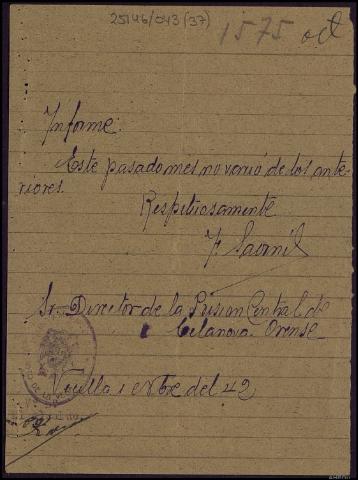 25146/043 (37)
1575 oct
Informe:
Este pasado mes no varió de los ante-
riores.
Respetuosamente
Sr. Director de la Prision Central de
Celanova. Orense
del 42